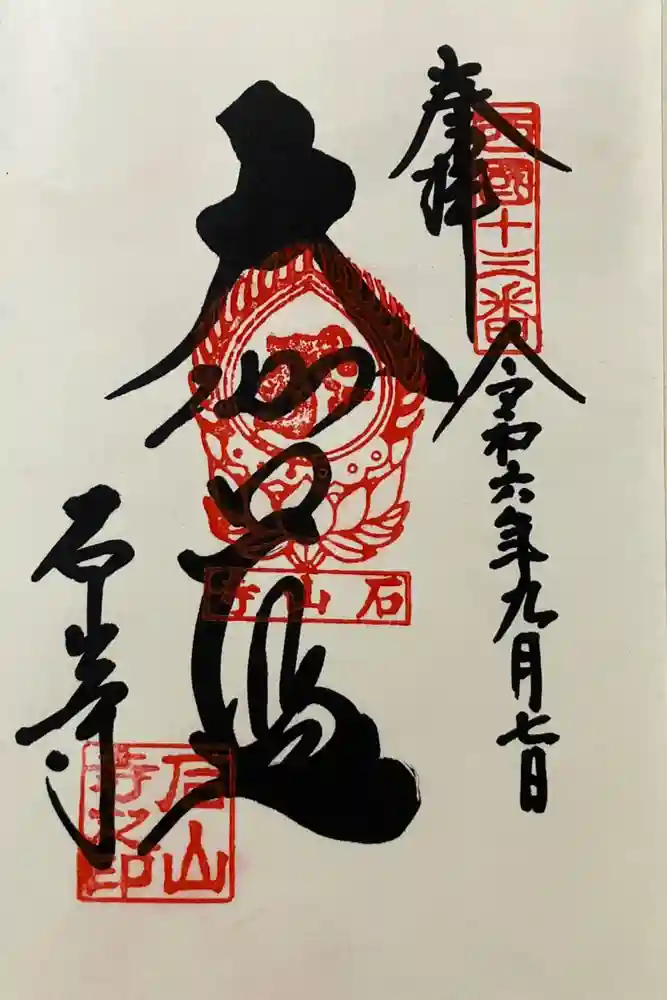 奉拝
西國十三番
令和六年九月七日
石山寺
石山寺
石山寺之印